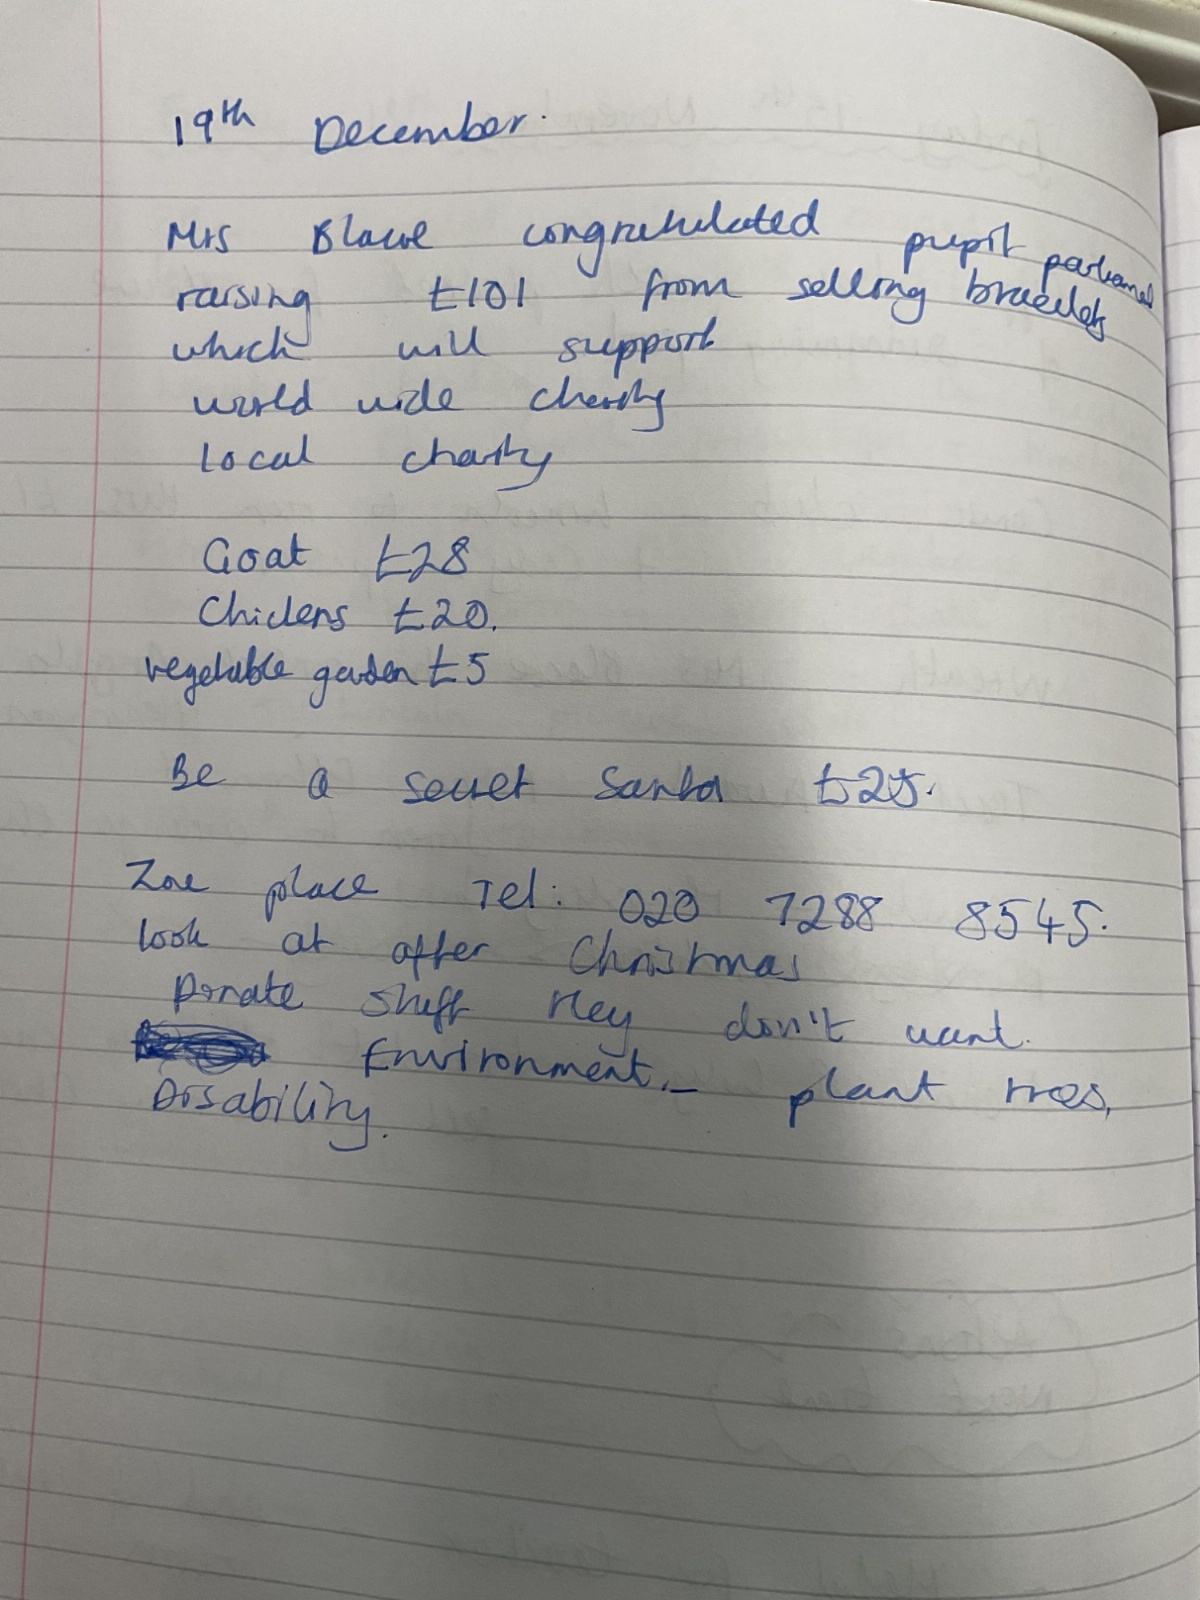 19th December.
Mrs congratulated pupil parliament
raising £101 from selling bracelets
which will support
world wide charity
Local charity
Goat £28
Chickens £20.
vegetable garden £5
Be a secret Santa £25.
Zoe place Tel: 020 7288 8545.
look at after Christmas
Donate stuff they don't want.
Environment. - plant trees,
Disability.